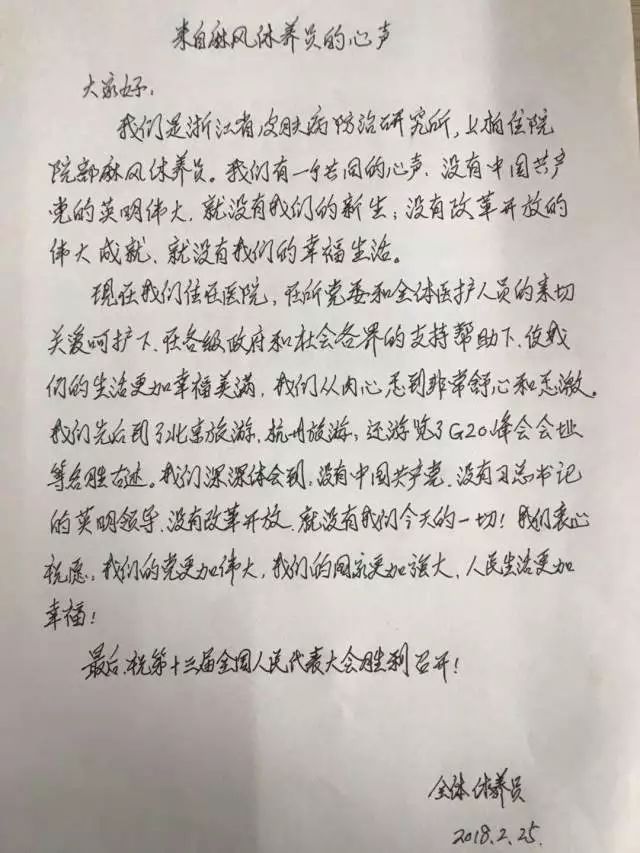 来自麻风休养员的心声
大家好:
我们是浙江省皮肤病防治研究所,上柏住院
院部麻风休养员。我们有一个共同的心声、没有中国共产
党的英明伟大、就没有我们的新生;没有改革开放的
伟大成就、就没有我们的幸福生活。
现在我们住在医院,在所党委和全体医护人员的亲切
关爱呵护下、在各级政府和社会各界的支持帮助下、使我
们的生活更加幸福美满,我们从内心感到非常舒心和感激。
我们先后到了北京旅游、杭州旅游,还游览了G20峰会会址
等名胜古迹。我们深深体会到,没有中国共产党、没有习总书记
的英明领导、没有改革开放、就没有我们今天的一切!我们衷心
祝愿,我们的党更加伟大,我们的国家更加强大、人民生活更加
幸福!
最后、祝第十三届全国人民代表大会胜利召开!
全体休养员
2018.2.25.